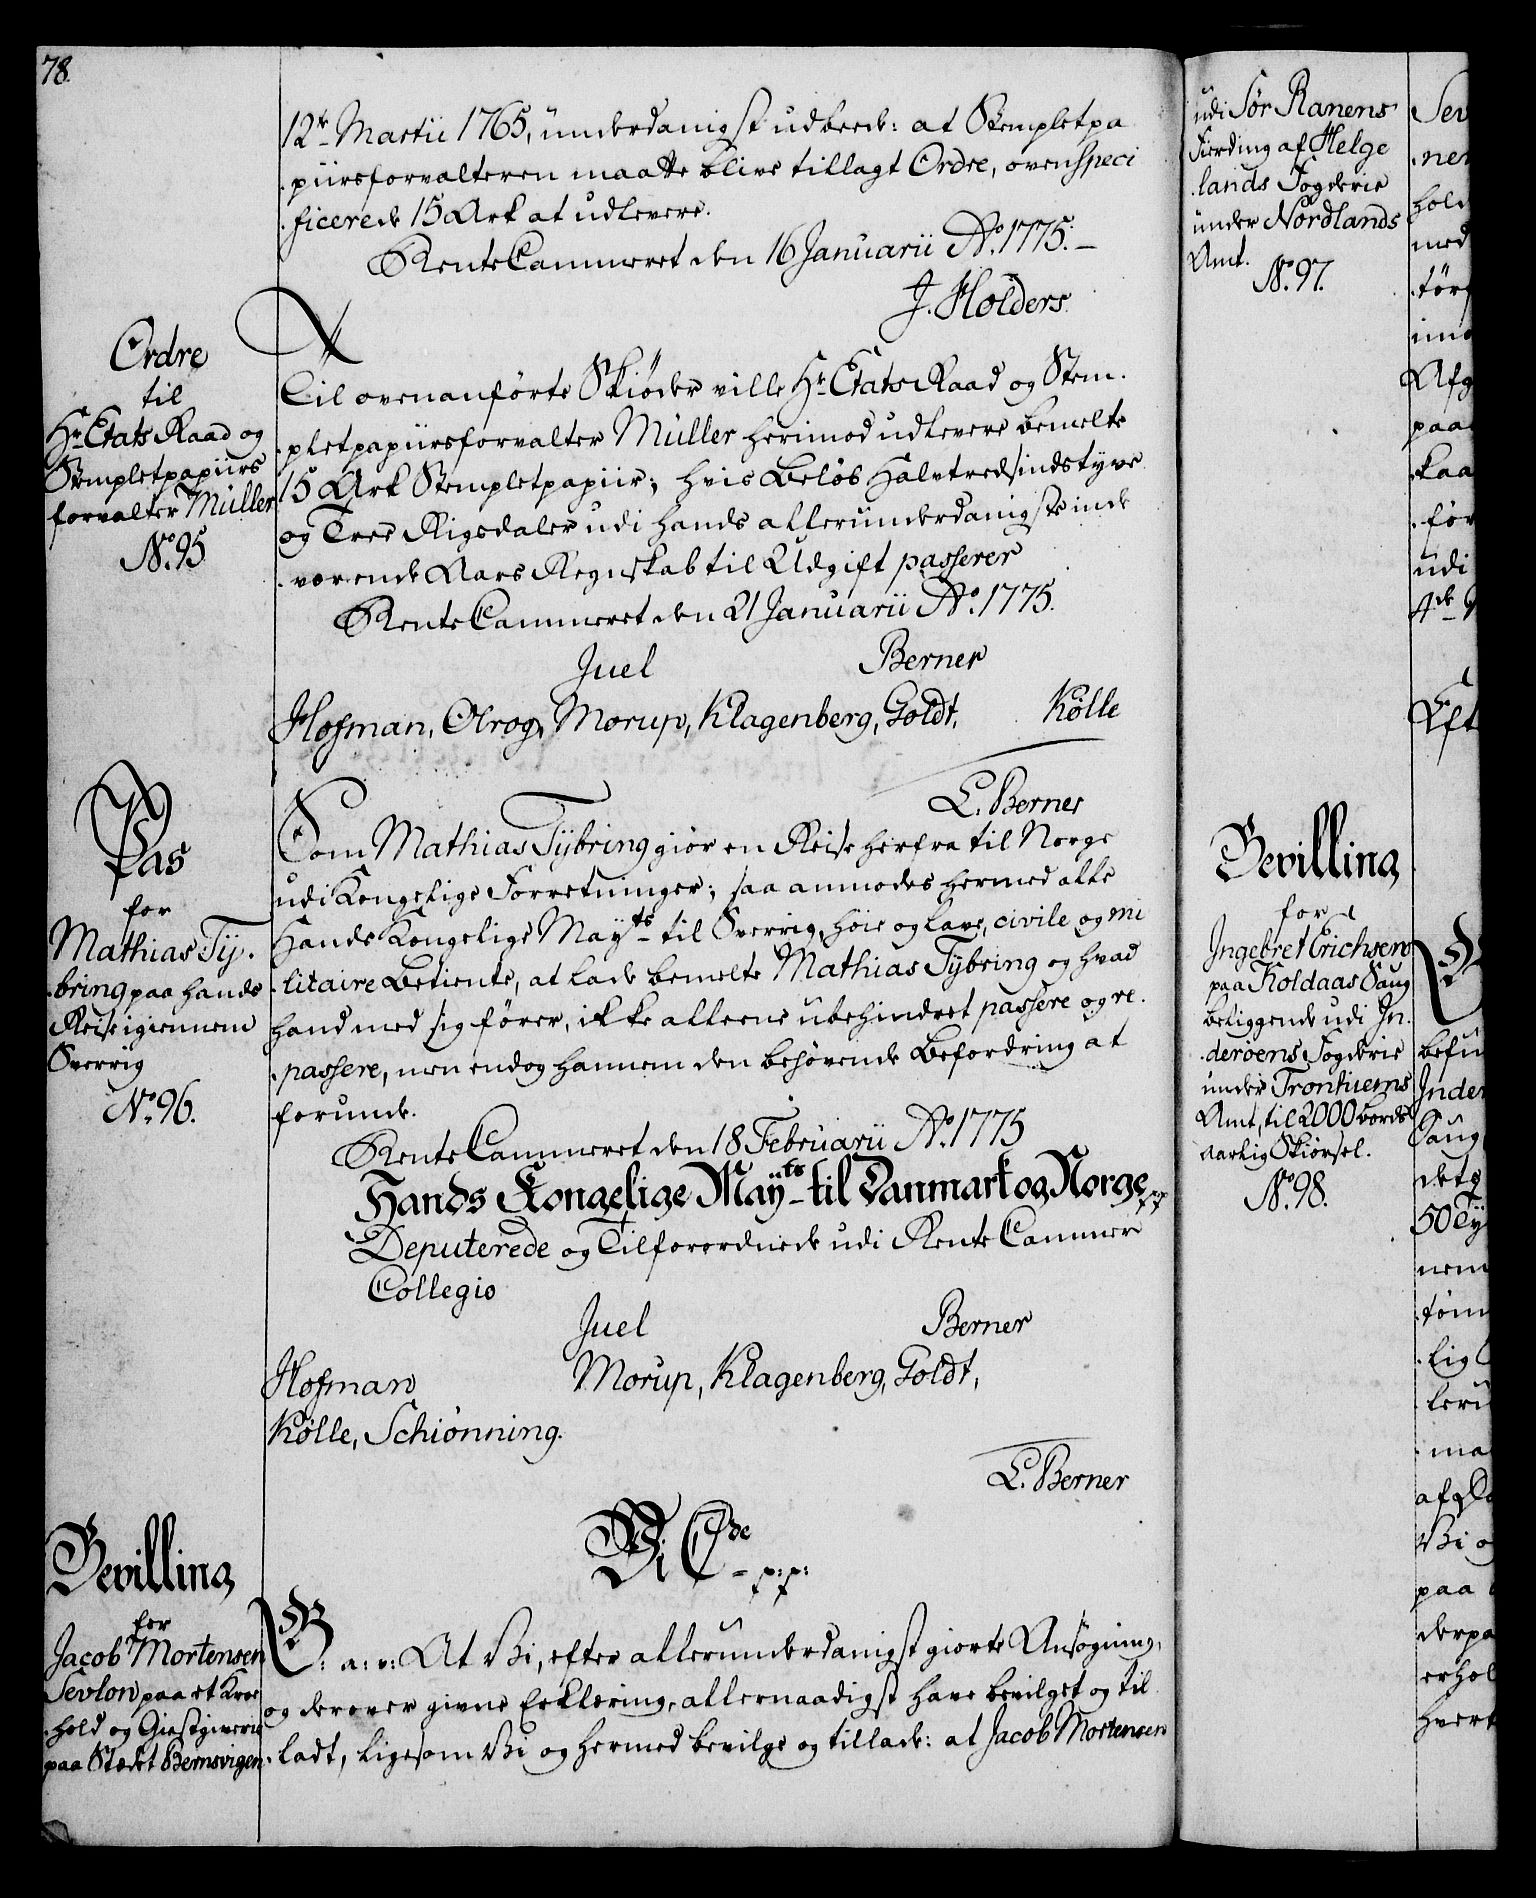 78.
12te Martii 1765, underdanigst udbede: at Stempletpa
piirsforvalteren maatte blive tillagt Ordre, ovenspeci
ficerede 15 Ark at udlevere.
RenteCammeret den 16 Januarii Ao. 1775.
J. Holders.
Ordre
til
Hr. Etats Raad og
Stempletpapiirs
forvalter Müller
No. 95
Til ovenanførte Skiøder ville Hr. Etats Raad og Stem-
pletpapiirsforvalter Müller herimod udlevere bemelte
15 Ark Stempletpapiir; hvis Beløb Halvtredsindstyve
og Tree Rigsdaler udi hands allerunderdanigste inde
værende Aars Regnskab til Udgift passerer
RenteCammeret den 21 Januarii Ao. 1775.
Juel Berner
Hofman, Olrog, Morup, Klagenberg, Goldt, Kølle
L. Berner
Pas
for
Mathias Ty-
bring paa hands
Reise igiennem
Sverrig
No. 96.
Som Mathias Tybring giør en Reise herfra til Norge
udi Kongelige Forretninger; saa anmodes hermed alle
Hands Kongelige Mayts. til Sverrig, høie og lave, civile og mi
litaire Betiente, at lade bemelte Mathias Tybring og hvad
hand med sig fører, ikke alleene ubehindret passere og re-
passere, men endog hannem den behøvende Befordring at
forunde.
RenteCammeret den 18 Februarii Ao. 1775
Hands Kongelige Mayts. til Danmark og Norge pp
Deputerede og Tilforordnede udi Rente Cammer
Collegio
Juel Berner
Hofman Morup, Klagenberg, Goldt,
Kølle, Schiønning.
L. Berner
Vi C de p:p:
Bevilling
for
Jacob Mortensen
Sevlon paa et Kroe
hold og Giestgiverie
paa Stædet Bernsvigen
G: a: v: At Vi, efter allerunderdanigst giorte Ansøgning,
og derover givne Erklæring, allernaadigst have bevilget og til
ladt, ligesom Vi og hermed bevilge og tillade: at Jacob Mortensen
udi Sør Ranens
Fierding af Helge
lands Fogderie
under Nordlands
Amt.
No. 97.
Bevilling
for
Ingebret Erichsen
paa Koldaas Saug
beliggende udi In-
derøens Fogderie
under Trontiems
Amt, til 2000 Bords
aarlig Skiørsel.
No. 98.